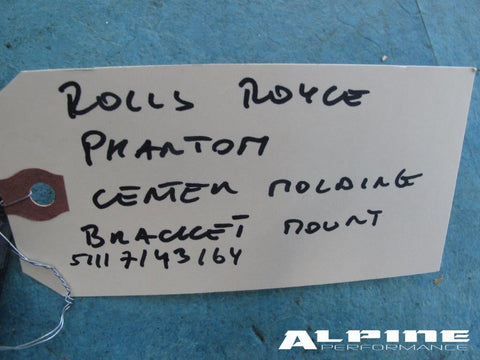 ROLLS ROYCE
PHANTOM
CENTER MOLDING
BRACKET MOUNT
51117143164
ALPINE
PERFORMANCE